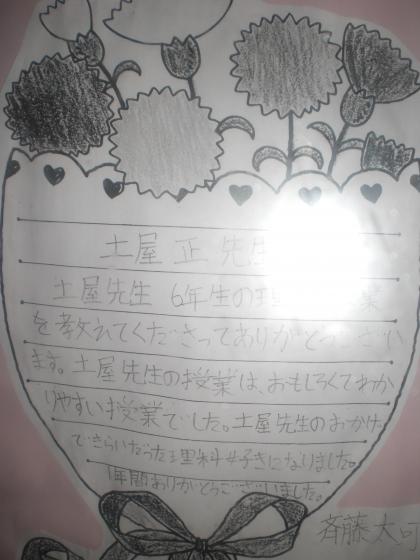 土屋 正 先生
土屋先生 6年生の理 業
を教えてくださってありがとうござい
ます。土屋先生の授業は、おもしろくてわか
りやすい授業でした。土屋先生のおかげ
できらいだった理科好きになりました。
1年間ありがとうございました。
斉藤太